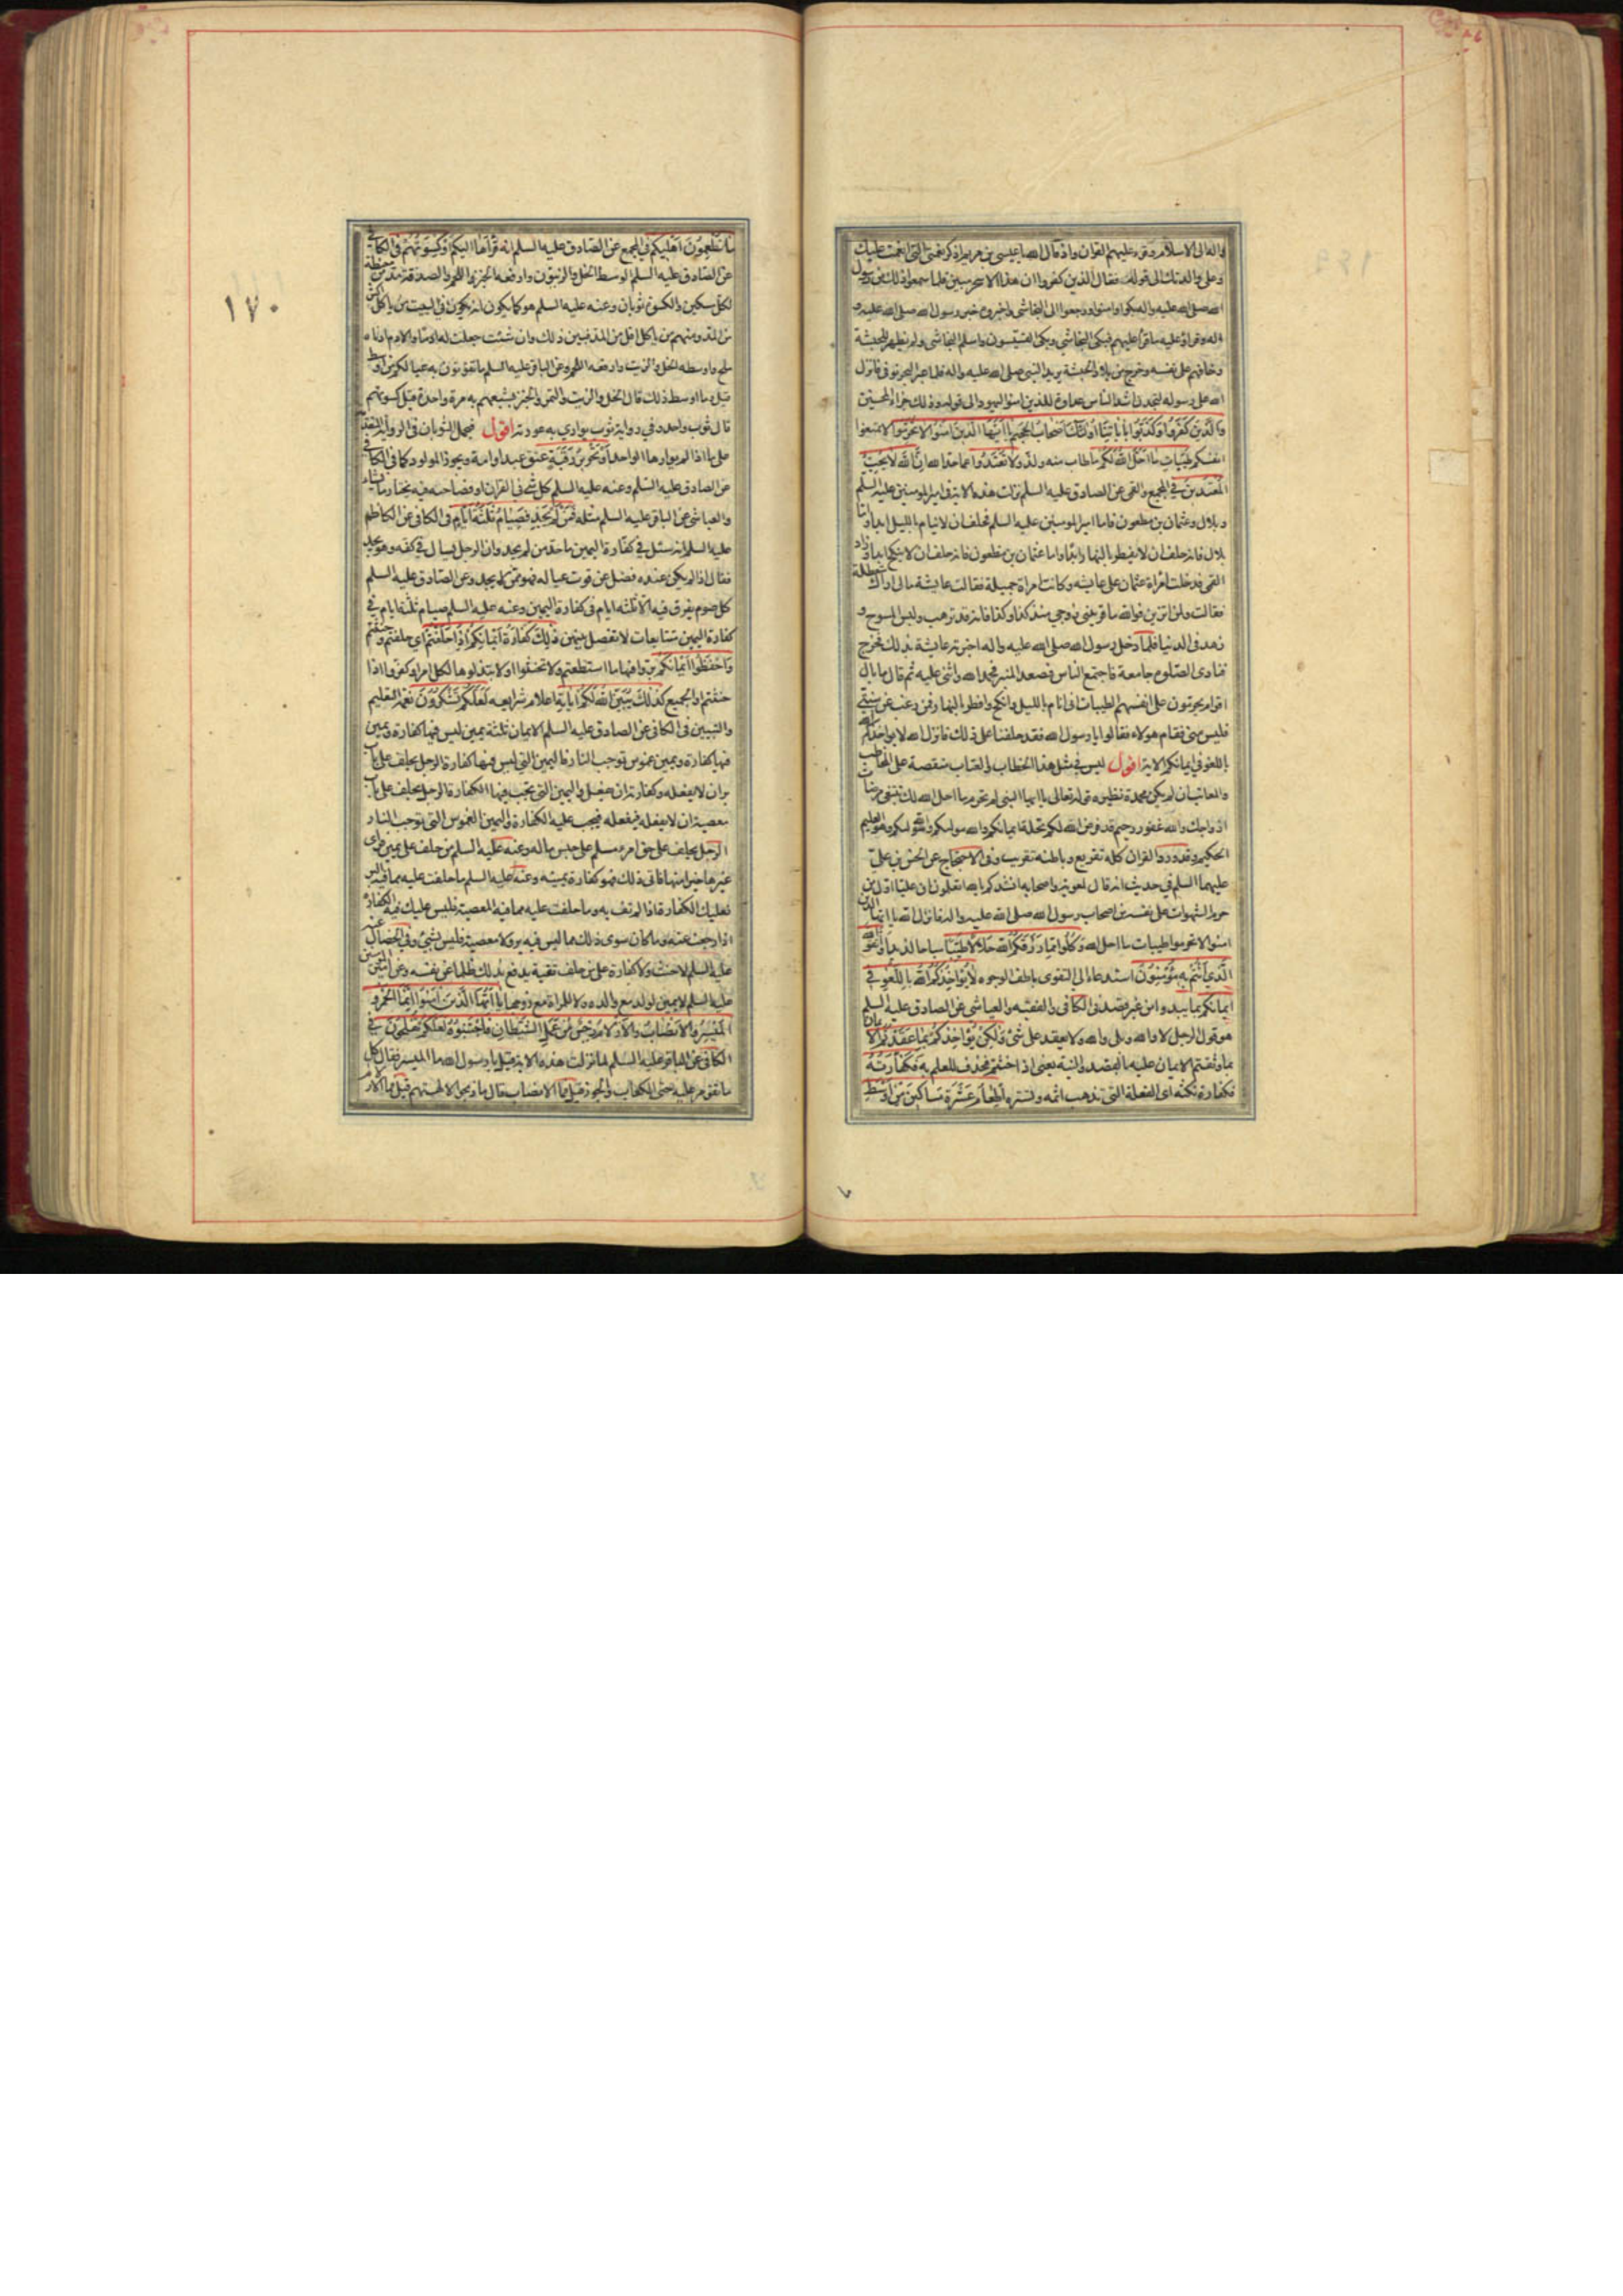 واله الى الاسلام وقرء عليهم القران واذ قال الله يا عيسى بن مريم اذكر نعمتي التي انعمت عليك
وعلى والدتك الى قوله فقال الذين كفروا ان هذا الا سحر مبين فلما سمعوا ذلك من رسول
الله صلى الله عليه واله بكوا وامنوا ورجعوا الى النجاشي واخبروه خبر رسول الله صلى الله عليه و
اله وقراؤ عليه ما قرا عليهم فبكى النجاشي وبكى القسيسون واسلم النجاشي ولم يظهر للحبشة
وخافهم على نفسه وخرج من بلاد الحبشة يريد النبي صلى الله عليه واله فلما عبر البحر توفى فانزل
الله على رسوله لتجدن اشد الناس عداوة للذين امنوا اليهود الى قوله وذلك جزاء المحسنين
والَّذينَ كَفَرُوا وَكَذَّبُوا بِاٰيٰاتِنٰا اُولٰئِكَ اَصْحٰابُ الْجَحيمِ يٰا اَيُّهَا الَّذينَ اٰمَنُوا لا تُحَرِّمُوا لا تمنعوا
انفسكم طَيِّباتِ ما اَحَلَّ اللهُ لَكُمْ ما طاب منه ولذ وَلا تَعْتَدُوا عما حد الله اِنَّ اللهَ لا يُحِبُّ
الْمُعْتَدينَ في المجمع والقمي عن الصادق عليه السلم نزلت هذه الاية في امير المومنين عليه السلم
وبلال وعثمان بن مظعون فاما امير المومنين عليه السلم فحلف ان لا ينام بالليل ابدا واما
بلال فانه حلف ان لا يفطر بالنهار ابدا واما عثمان بن مظعون فانه حلف ان لا ينكح ابدا وزاد
القمي فدخلت امراة عثمان على عايشه وكانت امراة جميلة فقالت عايشة مالي اراك متعطلة
فقالت ولمن اتزين فوالله ما قربني زوجي منذ كذا وكذا فانه قد ترهب ولبس المسوح و
زهد في الدنيا فلما دخل رسول الله صلى الله عليه واله اخبرته عايشة بذلك فخرج
فنادى الصلوة جامعة فاجتمع الناس فصعد المنبر فحمد الله واثنى عليه ثم قال ما بال
اقوام يحرمون على انفسهم الطيبات اني انام بالليل وانكح وافطر بالنهار فمن رغب عن سنتي
فليس مني فقام هولاء فقالوا يا رسول الله فقد حلفنا على ذلك فانزل الله لا يواخذكم الله
باللغو في ايمانكم الاية اقول ليس في مثل هذا الخطاب والعتاب منقصة على المخاطب
والمعاتب ان لم يكن محمدة نظيره قوله تعالى يا ايها النبي لم تحرم ما احل الله لك تبتغي مرضات
ازواجك والله غفور رحيم قد فرض الله لكم تحلة ايمانكم والله موليكم وهو العليم
الحكيم وقد ورد القران كله تقريع وباطنه تقريب وفي الاحتجاج عن الحسن بن علي
عليهما السلم في حديث انه قال لمعوية واصحابه انشدكم بالله اتعلمون ان عليا اول من
حرم الشهوات على نفسه من اصحاب رسول الله صلى الله عليه واله فانزل الله يا ايها الذين
امنوا لا تحرموا طيبات ما احل الله وَكُلُوا مِمّا رَزَقَكُمُ اللهُ حَلالاً طَيِّباً مباحا لذيذا وَاتَّقُوا اللهَ
الَّذي اَنْتُمْ بِه مُؤْمِنُونَ استدعاء الى التقوى بالطف الوجوه لا يُؤاخِذُكُمُ اللهُ بِاللَّغْوِ في
ايمانكم بما يبدو من غير قصد في الكافي والفقيه والعياشي عن الصادق عليه السلم
هو قول الرجل لا والله وبلى والله ولا يعقد على شئ وَلكِنْ يُؤاخِذُكُمْ بِما عَقَّدْتُمُ الاَيْمانَ
بما وثقتم الايمان عليه بالقصد والنية يعني اذا حنثتم فحذف للعلم به فَكَفّارَتُهُ
فكفارة نكثه اى الفعلة التي تذهب اثمه وتستره اِطْعامُ عَشَرَةِ مَساكينَ مِنْ اَوْسَطِ
ما تُطْعِمُونَ اَهْليكُمْ في المجمع عن الصادق عليه السلم انه قرا اهاليكم اَوْ كِسْوَتُهُمْ في الكافي
عن الصادق عليه السلم الوسط الخل والزيتون وارفعه الخبز واللحم والصدقة مد من حنطة
لكل مسكين والكسوة ثوبان وعنه عليه السلم هو كما يكون انه يكون في البيت من ياكل اكثر
من المد ومنهم من ياكل اقل من المد فبين ذلك وان شئت جعلت لهم ادما والادم ادناه
ملح واوسطه الخل والزيت وارفعه اللحم وعن الباقر عليه السلم ما تقوتون به عيالكم من اوسط
قيل وما اوسط ذلك قال الخل والزيت والتمر والخبز يشبعهم به مرة واحدة قيل كسوتهم
قال ثوب واحد وفي رواية ثوب يواري به عورته اقول فيحمل الثوبان في الرواية المتقدمة
على ما اذا لم يوارها الواحد اَوْ تَحْريرُ رَقَبَةٍ عتق عبد او امة ويجوز المولود كما في الكافي
عن الصادق عليه السلم وعنه عليه السلم كل شئ في القران او فصاحبه فيه يختار ما يشاء
والعياشي عن الباقر عليه السلم مثله فَمَنْ لَمْ يَجِدْ فَصِيامُ ثَلثَةِ اَيّامٍ في الكافي عن الكاظم
عليه السلم انه سئل في كفارة اليمين ما حد من لم يجد وان الرجل يسال في كفه وهو يجد
فقال اذا لم يكن عنده فضل عن قوت عياله فهو ممن لم يجد وعن الصادق عليه السلم
كل صوم يفرق فيه الا ثلثة ايام في كفارة اليمين وعنه عليه السلم صيام ثلثة ايام في
كفارة اليمين متتابعات لا تفصل بينهن ذلِكَ كَفّارَةُ اَيْمانِكُمْ اِذا حَلَفْتُمْ اي حلفتم وحنثتم
وَاحْفَظُوا اَيْمانَكُمْ بروا فيها ما استطعتم ولا تحنثوا او لا تبذلوها لكل امر او كفروا اذا
حنثتم او الجميع كَذلِكَ يُبَيِّنُ اللهُ لَكُمْ اياتِه اعلام شرايعه لَعَلَّكُمْ تَشْكُرُونَ نعمة التعليم
والتبيين في الكافي عن الصادق عليه السلم الايمان ثلثة يمين ليس فيها كفارة ويمين
فيها كفارة ويمين غموس توجب النار فاليمين التي ليس فيها كفارة الرجل يحلف على باب
بر ان لا يفعله وكفارته ان يفعل واليمين التي تجب فيها الكفارة الرجل يحلف على باب
معصية ان لا يفعله فيفعله فيجب عليه الكفارة واليمين الغموس التي توجب النار
الرجل يحلف على حق امرء مسلم على حبس ماله وعنه عليه السلم من حلف على يمين فراى
غيرها خيرا منها فاتى ذلك فهو كفارة يمينه وعنه عليه السلم ما حلفت عليه مما فيه البر
فعليك الكفارة فاذا لم تف به وما حلفت عليه مما فيه المعصية فليس عليك فيه الكفارة
اذا رجعت عنه وما كان سوى ذلك مما ليس فيه بر ولا معصية فليس بشئ وفي الخصال عنه
عليه السلم لا حنث ولا كفارة على من حلف تقية يدفع بذلك ظلما عن نفسه وعن امير المومنين
عليه السلم لا يمين لولد مع والده ولا للمراة مع زوجها يا اَيُّهَا الَّذينَ امَنُوا اِنَّمَا الْخَمْرُ وَ
الْمَيْسِرُ وَالاَنْصابُ وَالاَزْلامُ رِجْسٌ مِنْ عَمَلِ الشَّيْطانِ فَاجْتَنِبُوهُ لَعَلَّكُمْ تُفْلِحُونَ في
الكافي عن الباقر عليه السلم لما نزلت هذه الاية قيل يا رسول الله ما الميسر فقال كل
ما تقومر عليه حتى الكعاب والجوز قيل فما الانصاب قال ما ذبحوا لالهتهم قيل فما الازلام
١٧٠